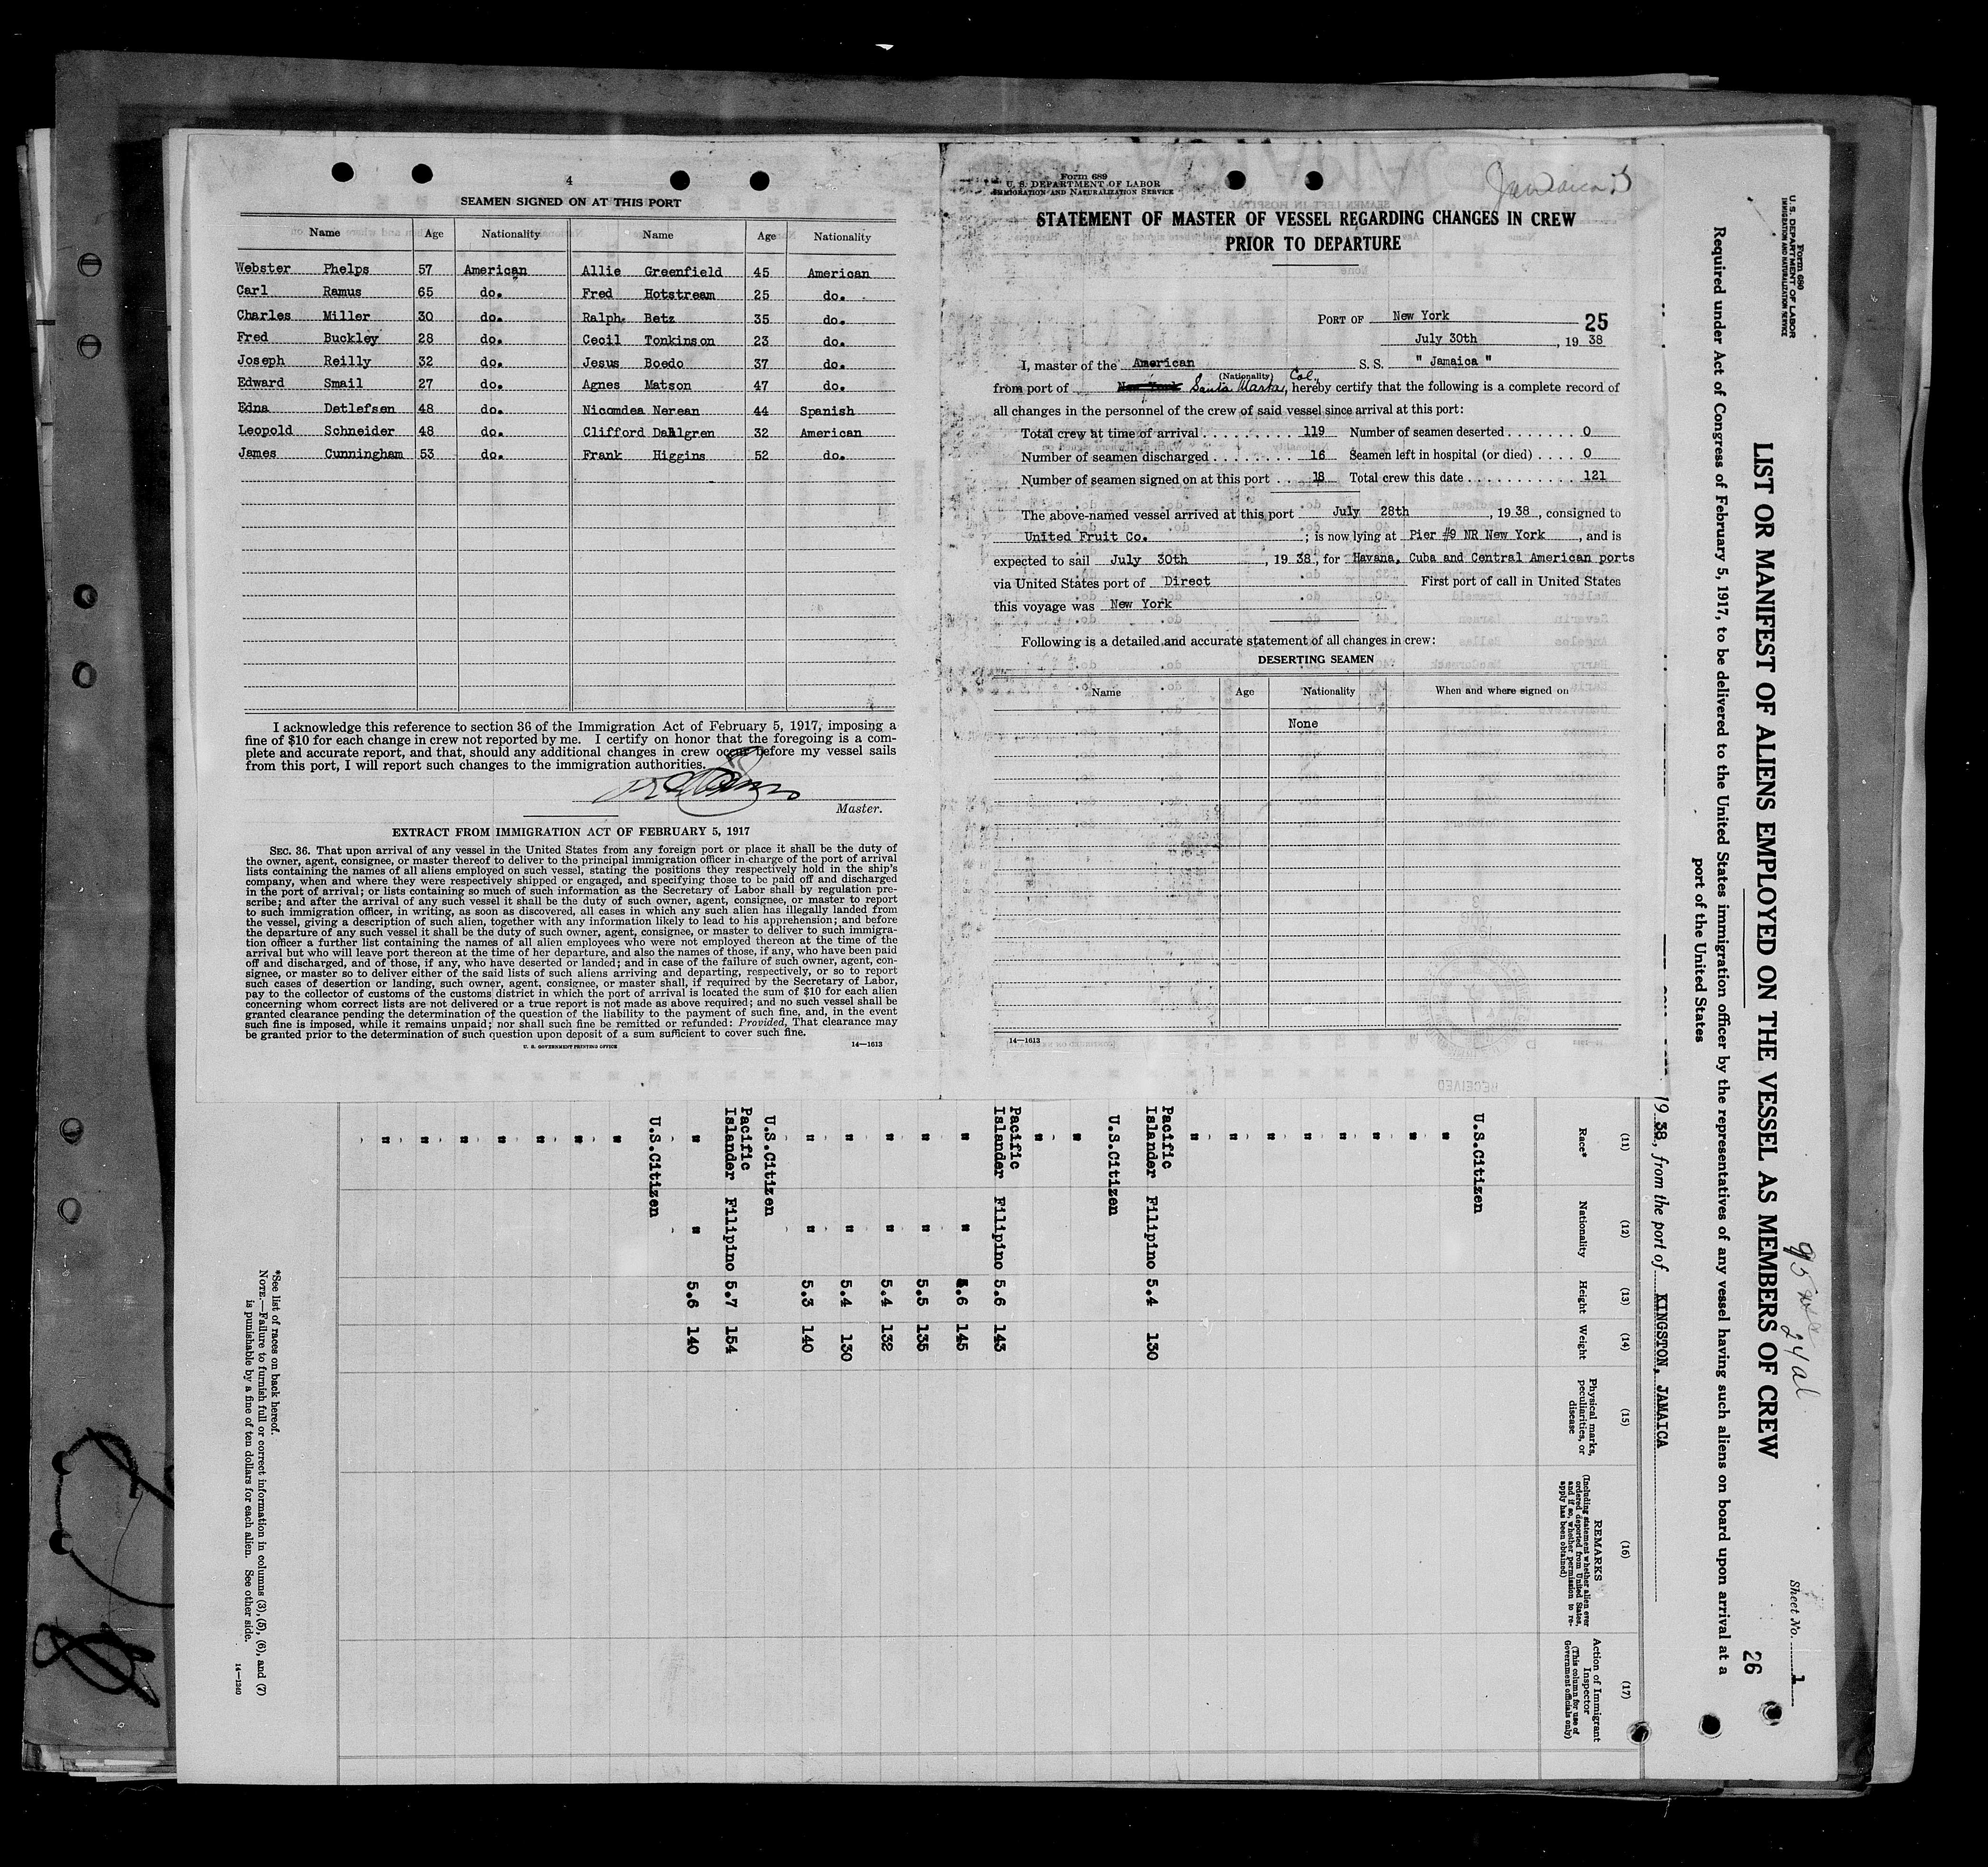 4
SEAMEN SIGNED ON AT THIS PORT
Name Age Nationality Name Age Nationality
Webster Phelps 57 American Allie Greenfield 45 American
Carl Ramus 65 do. Fred Hotstream 25 do.
Charles Miller 30 do. Ralph Betz 35 do.
Fred Buckley 28 do. Cecil Tonkinson 23 do.
Joseph Reilly 32 do. Jesus Boedo 37 do.
Edward Smail 27 do. Agnes Matson 47 do.
Edna Detlefsen 48 do. Nicomdea Nerean 44 Spanish
Leopold Schneider 48 do. Clifford Dahlgren 32 American
James Cunningham 53 do. Frank Higgins 52 do.
I acknowledge this reference to section 36 of the Immigration Act of February 5, 1917, imposing a
fine of $10 for each change in crew not reported by me. I certify on honor that the foregoing is a com-
plete and accurate report, and that, should any additional changes in crew occur before my vessel sails
from this port, I will report such changes to the immigration authorities.
Master.
EXTRACT FROM IMMIGRATION ACT OF FEBRUARY 5, 1917
SEC. 36. That upon arrival of any vessel in the United States from any foreign port or place it shall be the duty of
the owner, agent, consignee, or master thereof to deliver to the principal immigration officer in charge of the port of arrival
lists containing the names of all aliens employed on such vessel, stating the positions they respectively hold in the ship's
company, when and where they were respectively shipped or engaged, and specifying those to be paid off and discharged
in the port of arrival; or lists containing so much of such information as the Secretary of Labor shall by regulation pre-
scribe; and after the arrival of any such vessel it shall be the duty of such owner, agent, consignee, or master to report
to such immigration officer, in writing, as soon as discovered, all cases in which any such alien has illegally landed from
the vessel, giving a description of such alien, together with any information likely to lead to his apprehension; and before
the departure of any such vessel it shall be the duty of such owner, agent, consignee, or master to deliver to such immigra-
tion officer a further list containing the names of all alien employees who were not employed thereon at the time of the
arrival but who will leave port thereon at the time of her departure, and also the names of those, if any, who have been paid
off and discharged, and of those, if any, who have deserted or landed; and in case of the failure of such owner, agent, con-
signee, or master so to deliver either of the said lists of such aliens arriving and departing, respectively, or so to report
such cases of desertion or landing, such owner, agent, consignee, or master shall, if required by the Secretary of Labor,
pay to the collector of customs of the customs district in which the port of arrival is located the sum of $10 for each alien
concerning whom correct lists are not delivered or a true report is not made as above required; and no such vessel shall be
granted clearance pending the determination of the question of the liability to the payment of such fine, and, in the event
such fine is imposed, while it remains unpaid; nor shall such fine be remitted or refunded: Provided, That clearance may
be granted prior to the determination of such question upon deposit of a sum sufficient to cover such fine.
U. S. GOVERNMENT PRINTING OFFICE 14—1613
Form 689
U. S. DEPARTMENT OF LABOR
IMMIGRATION AND NATURALIZATION SERVICE
Jamaica
STATEMENT OF MASTER OF VESSEL REGARDING CHANGES IN CREW
PRIOR TO DEPARTURE
PORT OF New York 25
July 30th, 19 38
I, master of the American S. S. " Jamaica "
(Nationality)
from port of New York Santa Marta, Col., hereby certify that the following is a complete record of
all changes in the personnel of the crew of said vessel since arrival at this port:
Total crew at time of arrival 119 Number of seamen deserted 0
Number of seamen discharged 16 Seamen left in hospital (or died) 0
Number of seamen signed on at this port 18 Total crew this date 121
The above-named vessel arrived at this port July 28th, 19 38, consigned to
United Fruit Co.; is now lying at Pier #9 NR New York, and is
expected to sail July 30th, 19 38, for Havana, Cuba and Central American ports
via United States port of Direct First port of call in United States
this voyage was New York
Following is a detailed and accurate statement of all changes in crew:
DESERTING SEAMEN
Name Age Nationality When and where signed on
None
14—1613
RECEIVED
Form 680
U. S. DEPARTMENT OF LABOR
IMMIGRATION AND NATURALIZATION SERVICE
Sheet No. 1
26
LIST OR MANIFEST OF ALIENS EMPLOYED ON THE VESSEL AS MEMBERS OF CREW
Required under Act of Congress of February 5, 1917, to be delivered to the United States immigration officer by the representatives of any vessel having such aliens on board upon arrival at a
port of the United States
19 38, from the port of KINGSTON, JAMAICA
(11) (12) (13) (14) (15) (16) (17)
Race* Nationality Height Weight Physical marks, peculiarities, or disease REMARKS (Including statement whether alien ever ordered deported from United States, and if so, whether permission to re-apply has been obtained) Action of Immigrant Inspector (This column for use of Government officials only)
U.S.Citizen
"
"
"
"
"
"
"
Pacific Islander Filipino 5.4 130
U.S.Citizen
"
"
Pacific Islander Filipino 5.6 143
" " 5.6 145
" " 5.5 135
" " 5.4 132
" " 5.4 130
" " 5.3 140
U.S.Citizen
Pacific Islander Filipino 5.7 154
" " 5.6 140
U.S.Citizen
"
"
"
"
"
"
"
*See list of races on back hereof.
NOTE.—Failure to furnish full or correct information in columns (3), (5), (6), and (7)
is punishable by a fine of ten dollars for each alien. See other side.
14—1240